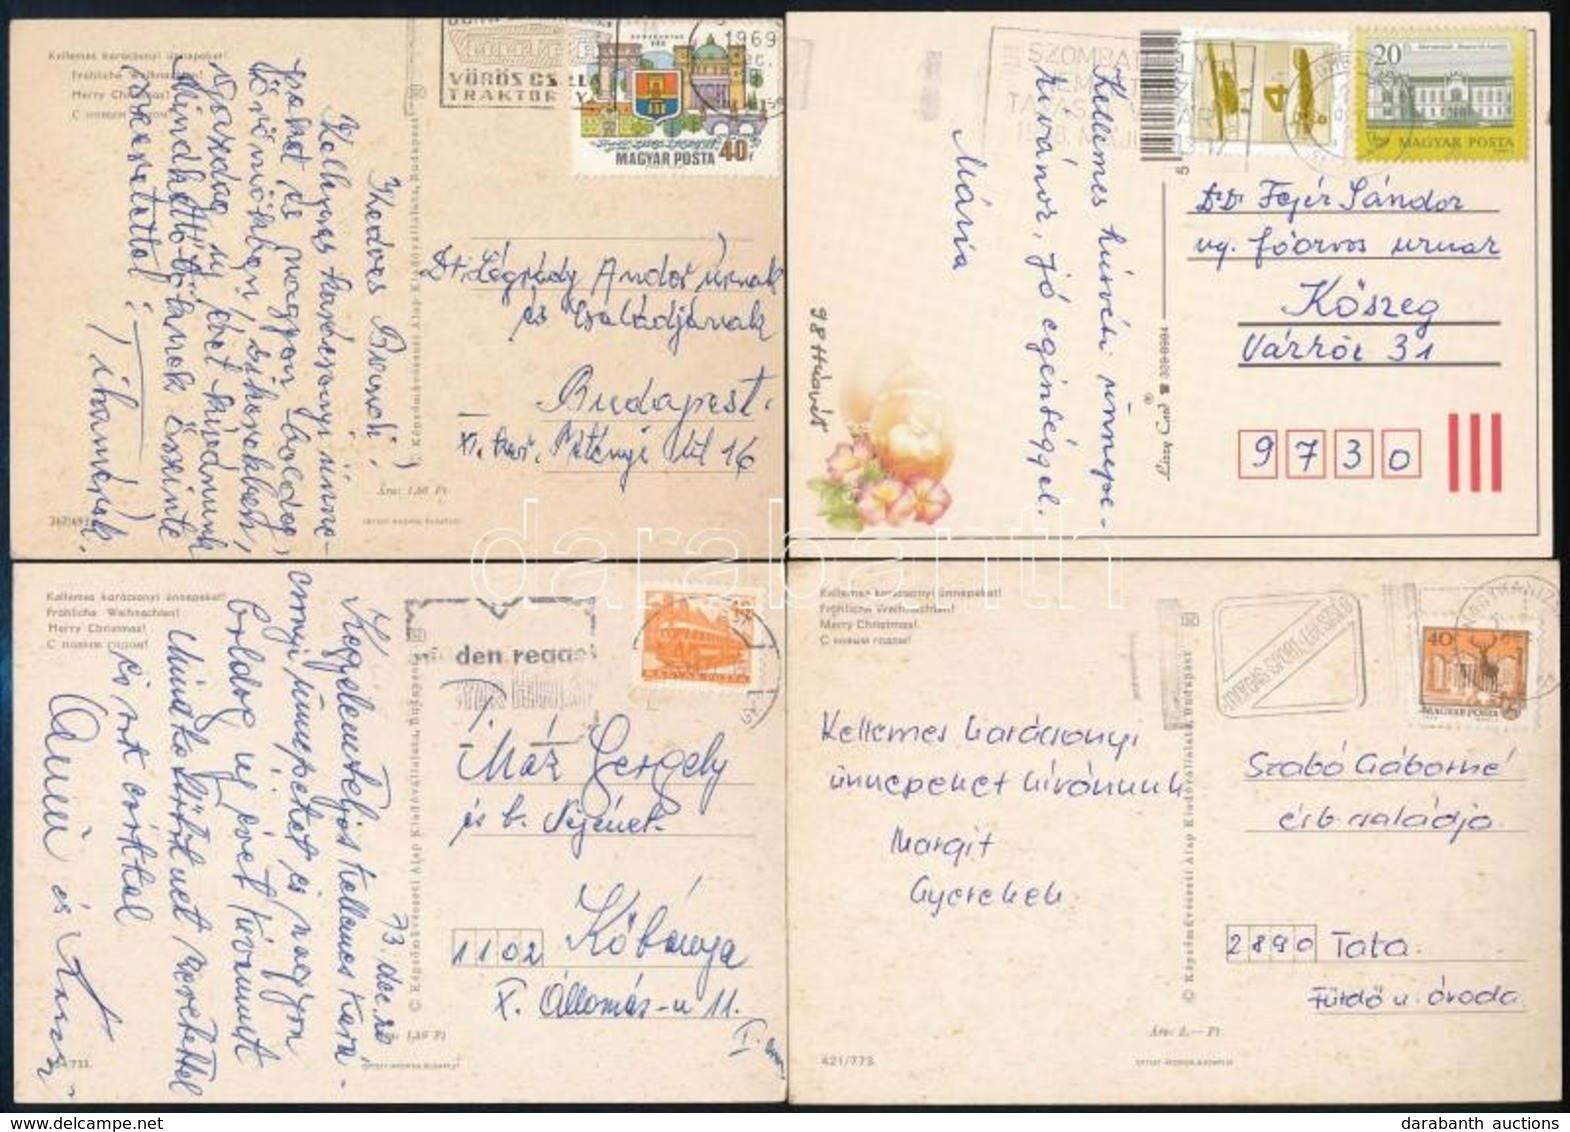 Kellemes karácsonyi ünnepeket!
Fröhliche Weihnachten!
Merry Christmas!
С новым годом!
Kedves Bandi!
Kellemes karácsonyi ünne-
peket és nagyon boldog,
örömökben, sikerekben
gazdag új évet kívánunk
Mindkettőtöknek őszinte
szeretettel:
Tihamérék.
Képzőművészeti Alap Kiadóvállalata, Budapest
1969
VÖRÖS CSILLAG
TRAKTOR
MAGYAR POSTA 40f
Dr. Légrády Andor úrnak
és Családjának
Budapest.
XI. ker. Bétányi út 16
Ára: 1,50 Ft
OFFSET-NYOMDA, BUDAPEST
Kellemes húsvéti ünnepe-
ket kívánok, jó egészséggel.
Mária
98 Húsvét
SZOMBATHELY
4
20
MAGYAR POSTA
Dr. Fejér Sándor
ny. főorvos úrnak
Kőszeg
Várkör 31
9730
Kellemes karácsonyi ünnepeket!
Fröhliche Weihnachten!
Merry Christmas!
С новым годом!
73. dec. 20
Kegyelemteljes kellemes kará-
csonyi ünnepeket és nagyon
boldog új évet kívánunk
Mindketőtöknek szeretettel
és sok csókkal
és
© Képzőművészeti Alap Kiadóvállalata, Budapest
Ára: 1,50 Ft
minden reggel
MAGYAR POSTA
Máz Gergely
és b. Nejének.
1102 Kőbánya
X. Állomás-u 11.
OFFSET-NYOMDA, BUDAPEST
Kellemes karácsonyi ünnepeket!
Fröhliche Weihnachten!
Merry Christmas!
С новым годом!
Kellemes karácsonyi
ünnepeket kívánunk
Margit
Gyerekek
© Képzőművészeti Alap Kiadóvállalata, Budapest
NAGYKANIZSA
40f
MAGYAR POSTA
Szabó Gáborné
és b. családja
2890 Tata.
Fürdő u. óvoda.
Ára: 2,— Ft
421/773.
OFFSET-NYOMDA, BUDAPEST
darabanth
darabanth auctions